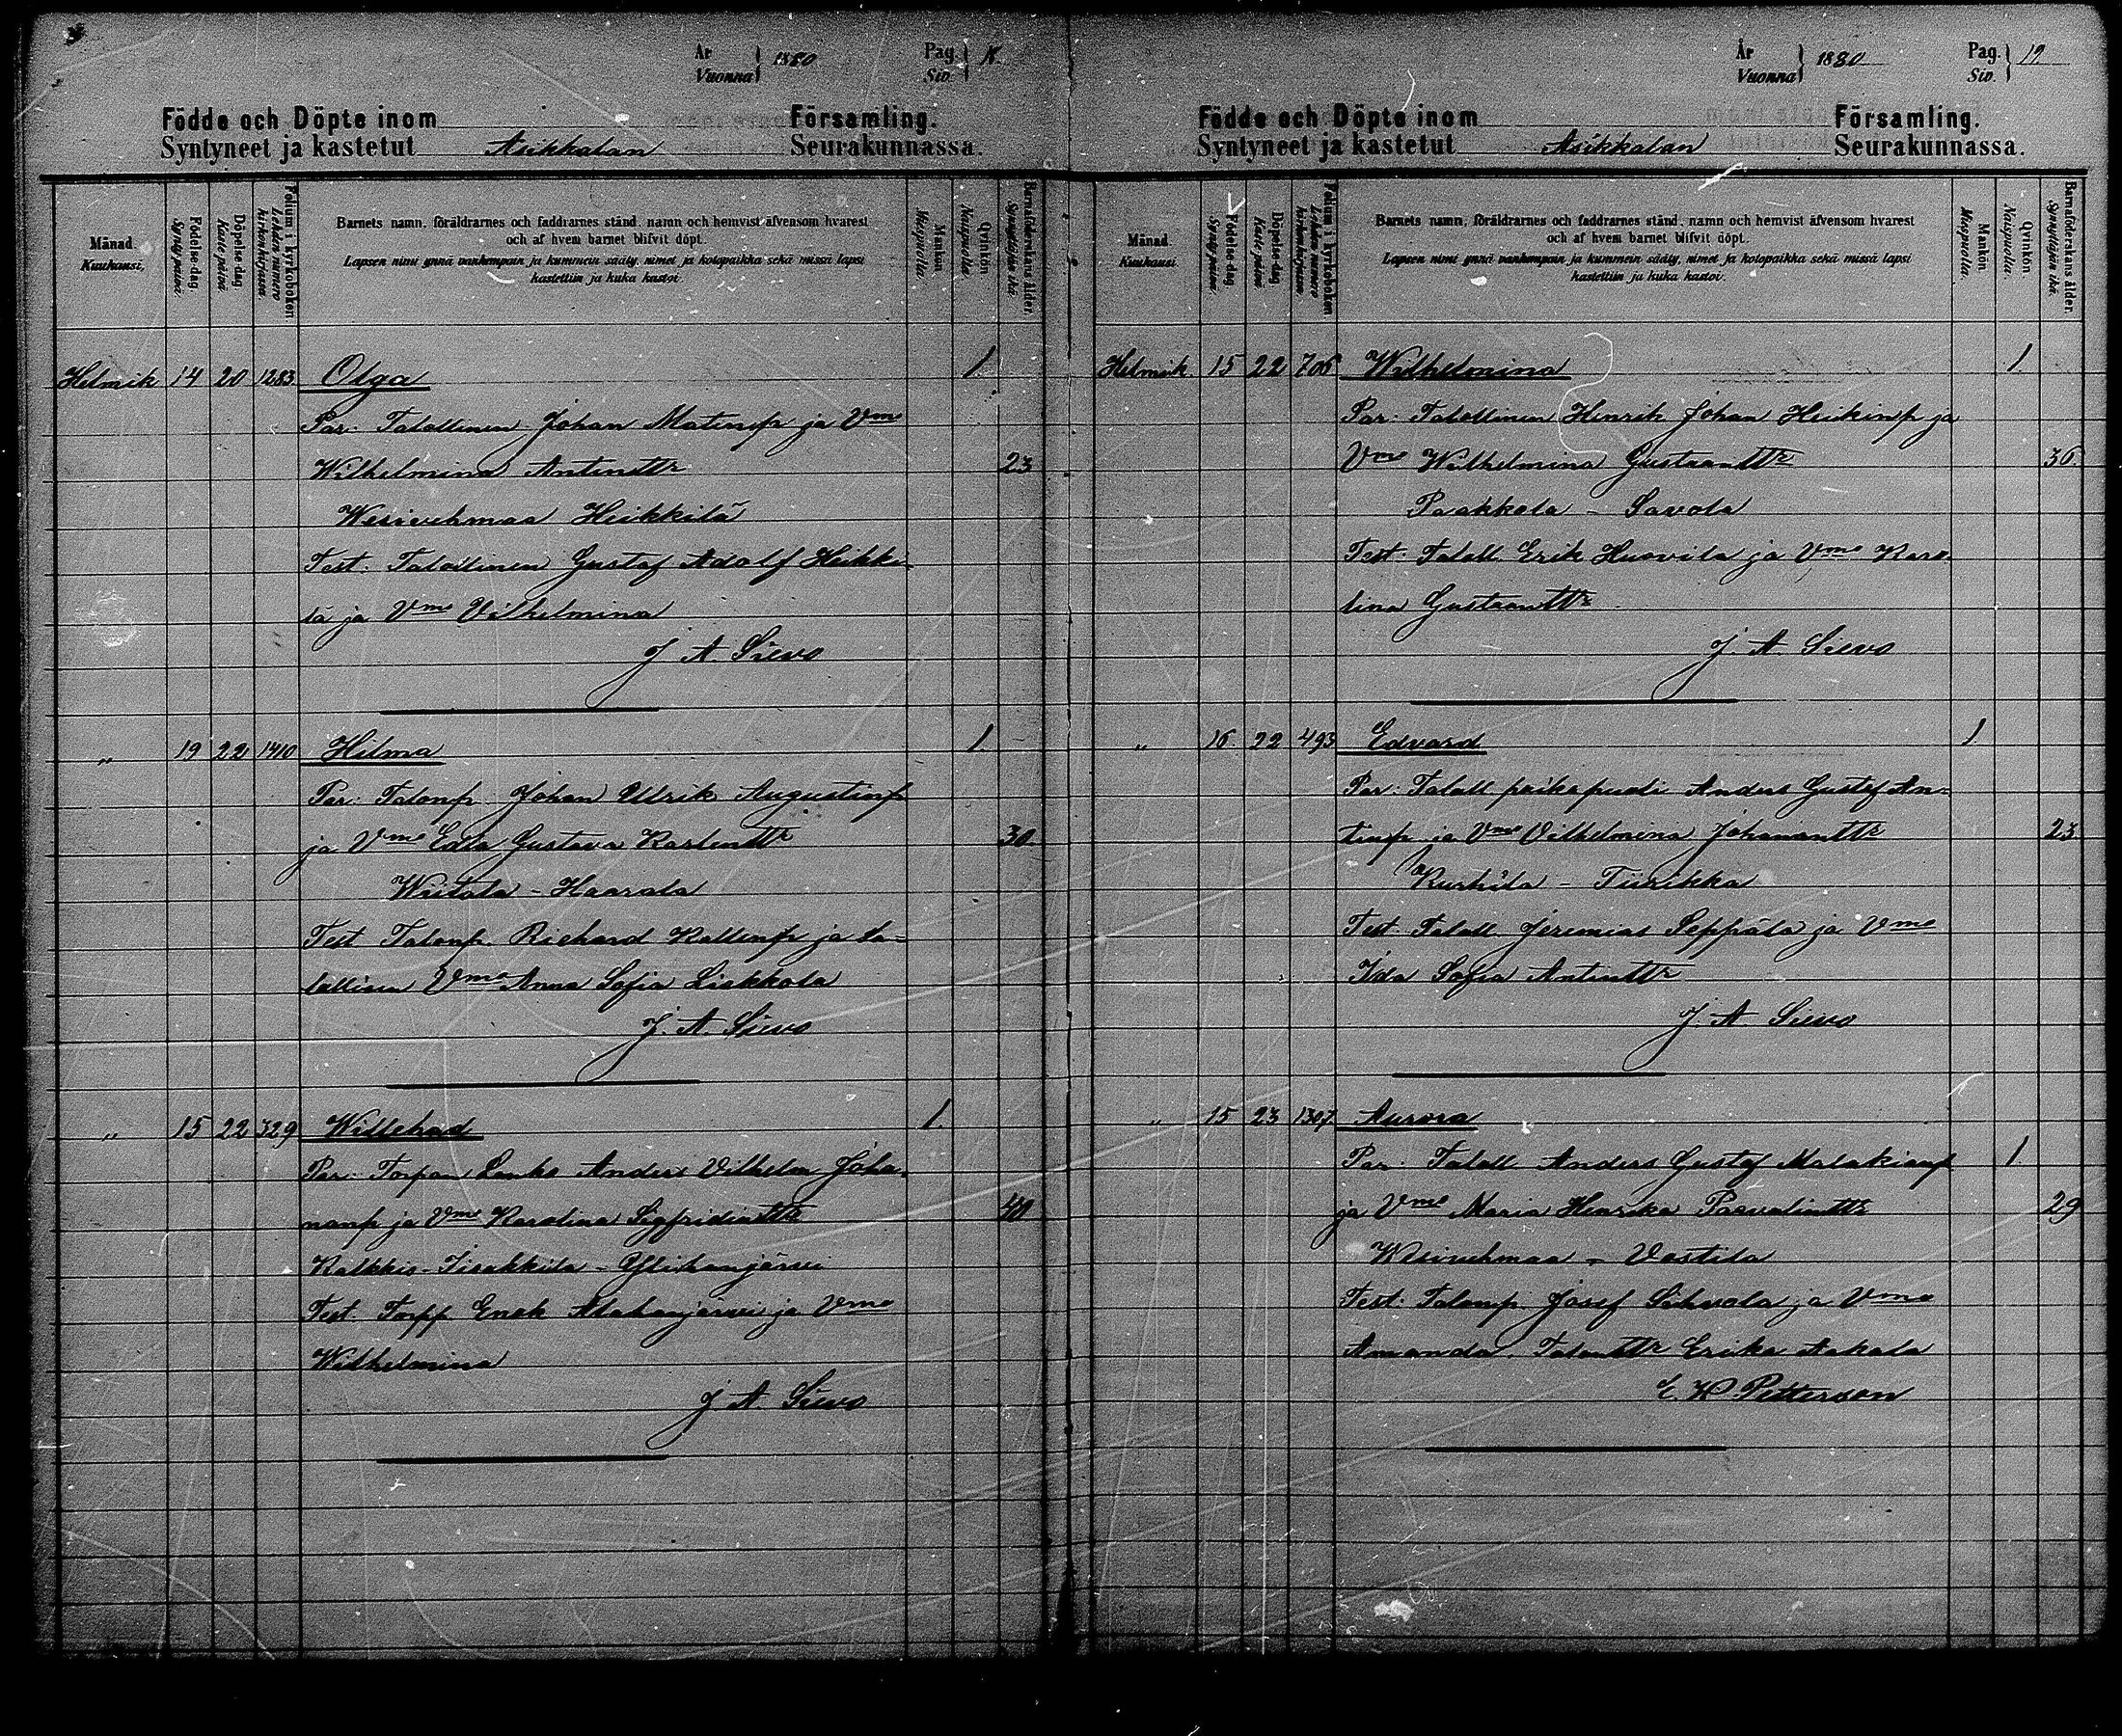 År Vuonna 1880 Pag. Siv. 18.
Födde och Döpte inom Församling.
Syntyneet ja kastetut Asikkalan Seurakunnassa.
Månad. Kuukausi.
Födelse-dag. Synty päivä.
Döpelse-dag. Kaste päivä.
Folium i kyrkoboken Lehden numero kirkonkirjassa.
Barnets namn, föräldrarnes och faddrarnes stånd, namn och hemvist äfvensom hvarest
och af hvem barnet blifvit döpt.
Lapsen nimi ynnä vanhempain ja kummein sääty, nimet ja kotopaikka sekä missä lapsi
kastettiin ja kuka kastoi.
Mankön Miespuolia.
Qvinkön Naispuolia.
Barnaföderskans ålder. Synnyttäjän ikä.
Helmik 14 20 1283 Olga 1
Par: Talollinen Johan Matinp ja Vmo
Wilhelmina Antintr 23
Wesivehmaa Heikkilä
Test: Talollinen Gustaf Adolf Heikki-
lä ja Vmo Vilhelmina
J A Sievo
" 19 22 1410 Hilma 1.
Par: Talonp Johan Ulrik Augustinp
ja Vmo Edla Gustava Karlintr 30.
Wiitala - Haarala
Test Talonp. Richard Kallenp ja ta-
lollisen Vmo Anna Sofia Liekkola
J. A. Sievo
" 15 22 329 Willehad 1.
Par: Torpan Anders Vilhelm Joha-
nanp ja Vmo Karolina Sigfridintr 40
Kalkkis-Iisakkila - Ylihanjärvi
Test: Torpp Enok Alahanjärvi ja Vmo
Wilhelmina
J A Sievo
År Vuonna 1880 Pag. Siv. 19.
Födde och Döpte inom Församling.
Syntyneet ja kastetut Asikkalan Seurakunnassa.
Månad. Kuukausi
Födelse-dag. Synty päivä.
Döpelse-dag. Kaste päivä.
Folium i kyrkoboken Lehden numero kirkonkirjassa.
Barnets namn, föräldrarnes och faddrarnes stånd, namn och hemvist äfvensom hvarest
och af hvem barnet blifvit döpt.
Lapsen nimi ynnä vanhempain ja kummein sääty, nimet ja kotopaikka sekä missä lapsi
kastettiin ja kuka kastoi.
Mankön Miespuolia.
Qvinkön Naispuolia.
Barnaföderskans ålder. Synnyttäjän ikä.
Helmik. 15 22 706 Wilhelmina 1.
Par: Talollinen Henrik Johan Heikinp ja
Vmo Wilhelmina Gustavintr 36.
Paakkola - Savola
Test: Taloll. Erik Huovila ja Vmo Karo-
lina Gustavintr
J. A. Sievo
" 16. 22 493 Edvard 1.
Par: Taloll poikapuoli Anders Gustaf An-
tinp ja Vmo Vilhelmina Johanantr 23
Kurhila - Tiirikka
Test Taloll. Jeremias Seppälä ja Vmo
Ida Sofia Antintr
J. A Sievo
" 15 23 1307. Aurora
Par: Taloll Anders Gustaf Malakianp 1.
ja Vmo Maria Henrika Paavalintr 29
Wesivehmaa - Vastila
Test: Talonp. Josef Sihvola ja Vmo
Amanda. Talontr Erika Aakala
E. W Petterson